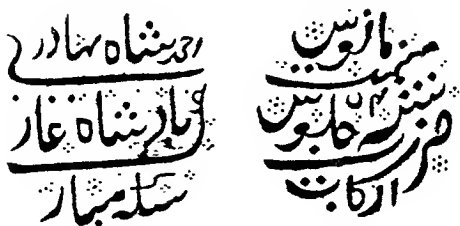 احمد شاه بهادر
بادشاه غاز
سکه مبار
مانوس
میمنت
سنه جلوس
ضرب
ارکات